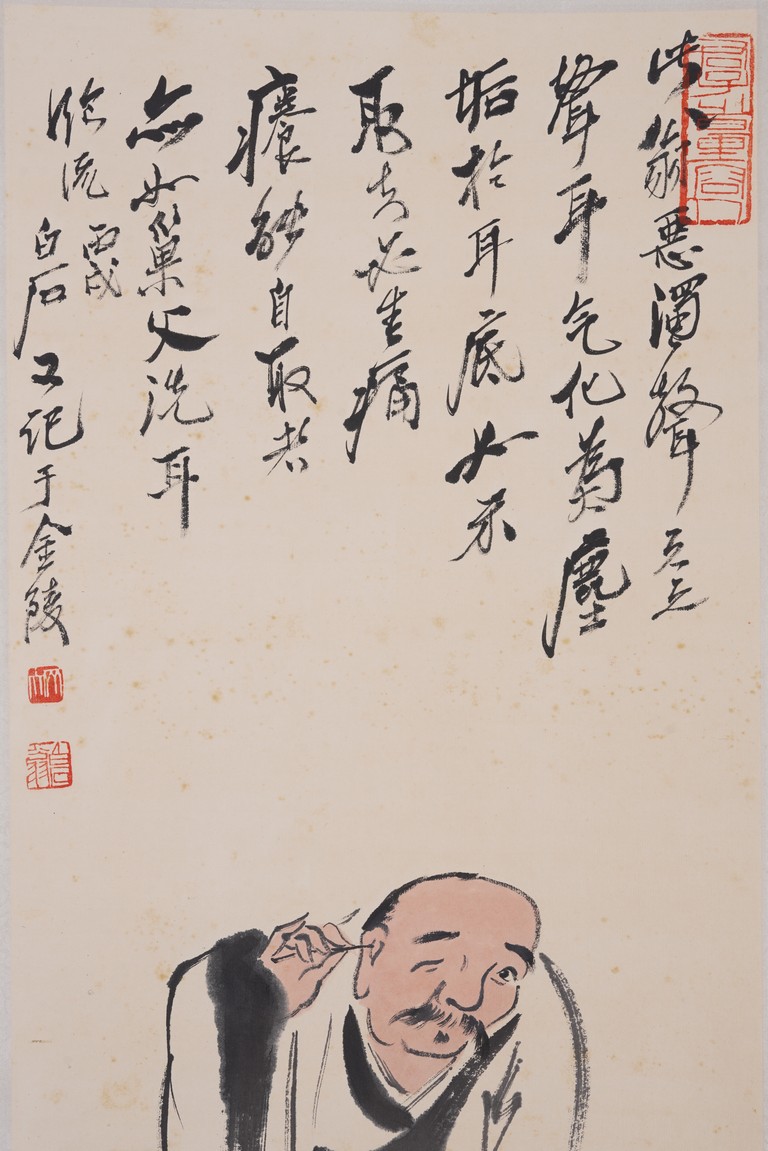 此翁惡濁聲久之
聾耳气化為塵
垢於耳底如不
取去必生痛
癢能自取者
亦如巢父洗耳
臨流 丙戌
白石又記于金陵